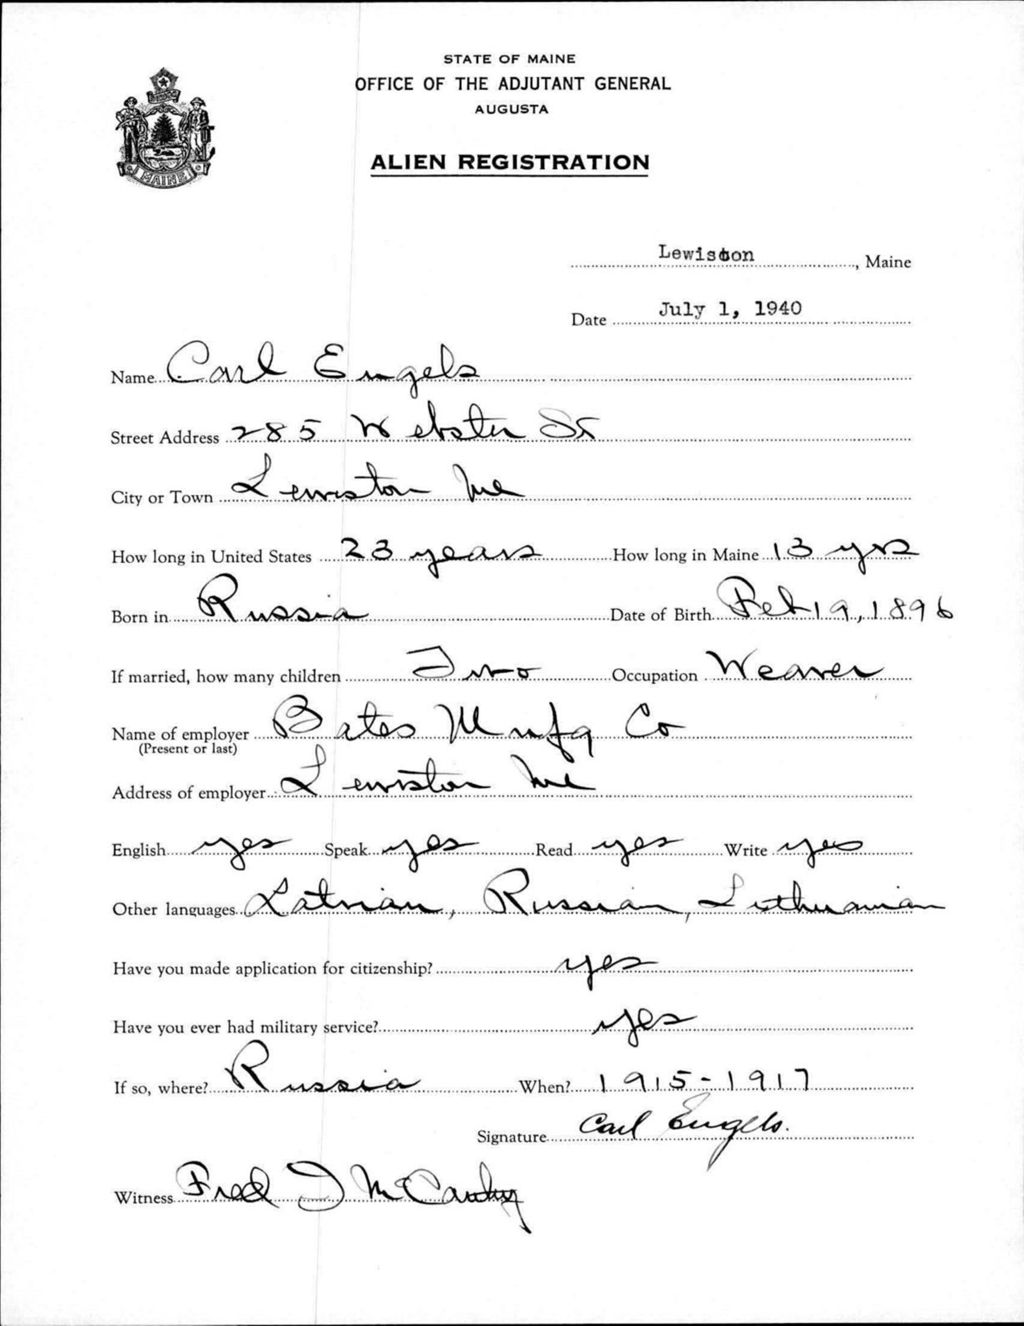 STATE OF MAINE
OFFICE OF THE ADJUTANT GENERAL
AUGUSTA
ALIEN REGISTRATION
MAINE
Lewiston, Maine
Date July 1, 1940
Name Carl Engels
Street Address 285 Webster St
City or Town Lewiston Me
How long in United States 23 years How long in Maine 13 yrs
Born in Russia Date of Birth Feb 19, 1896
If married, how many children Two Occupation Weaver
Name of employer Bates Mnfg Co
(Present or last)
Address of employer Lewiston Me
English yes Speak yes Read yes Write yes
Other languages Latvian, Russian, Lithuanian
Have you made application for citizenship? yes
Have you ever had military service? yes
If so, where? Russia When? 1915-1917
Signature Carl Engels.
Witness Fred J McCarthy